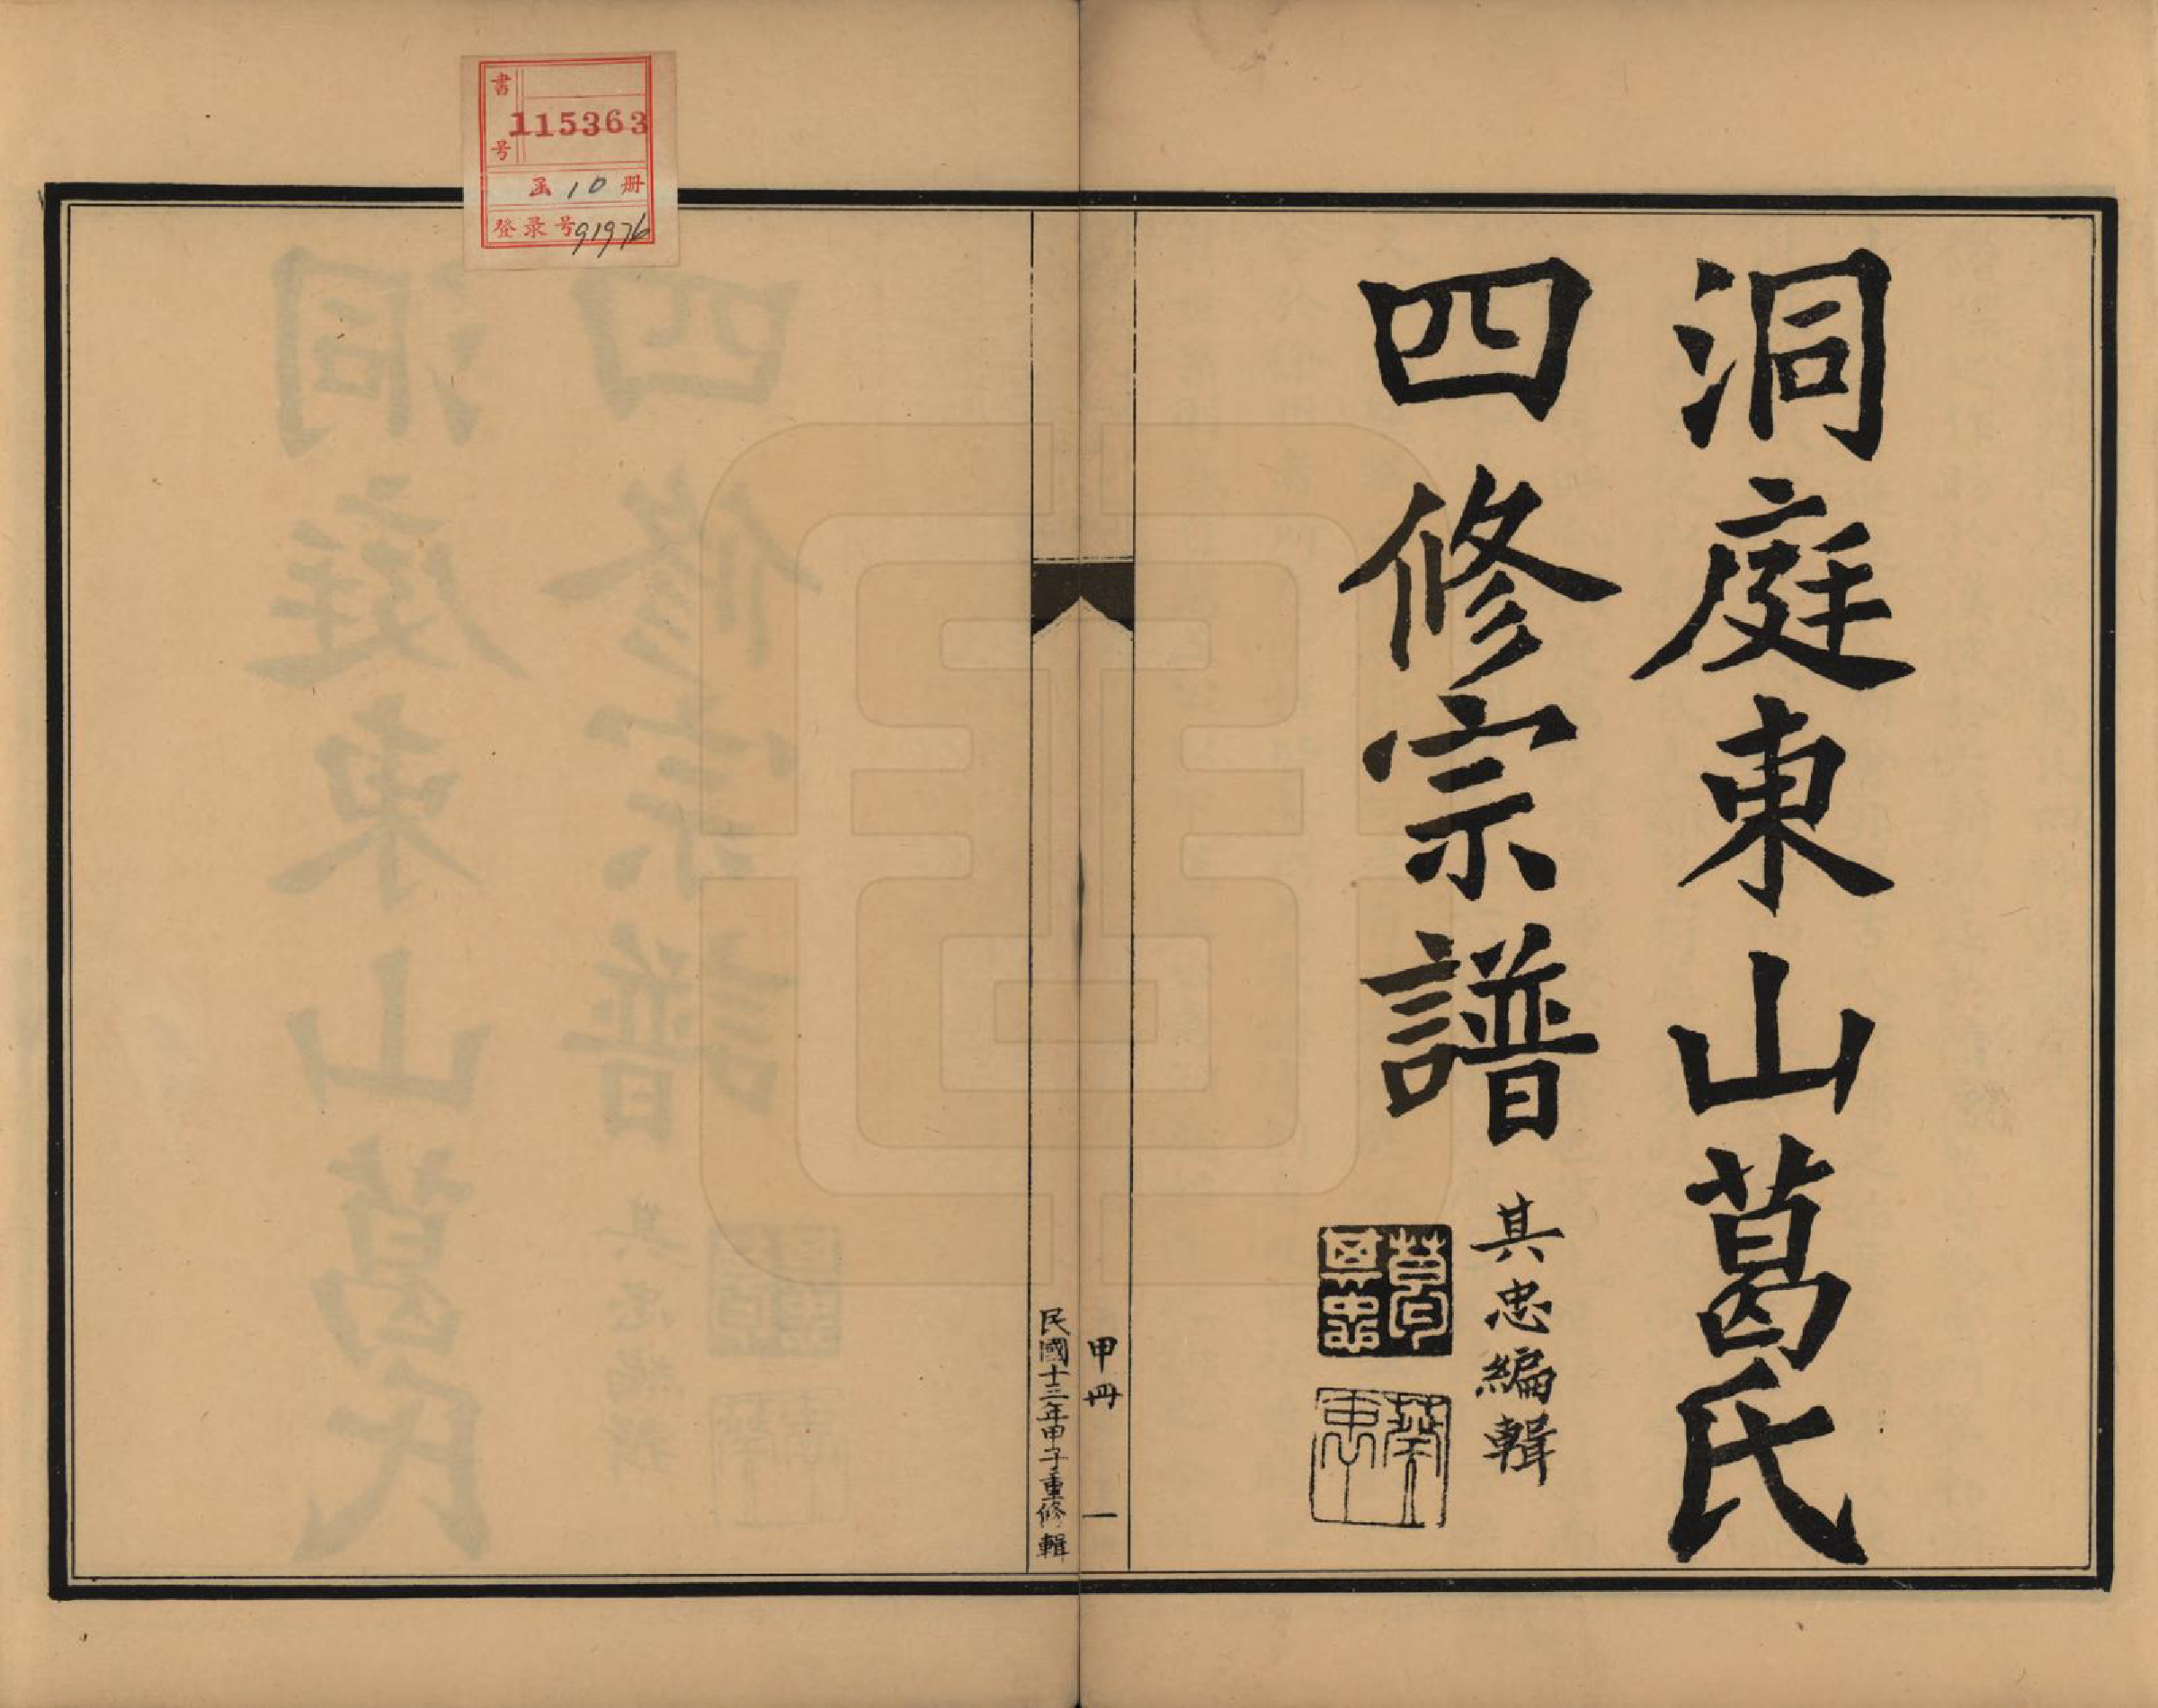 洞庭東山葛氏
四修宗譜
其忠編輯
葛印
其忠
甲冊 一
民國十三年甲子重修輯
書号 115363
函 10 册
登录号 91976